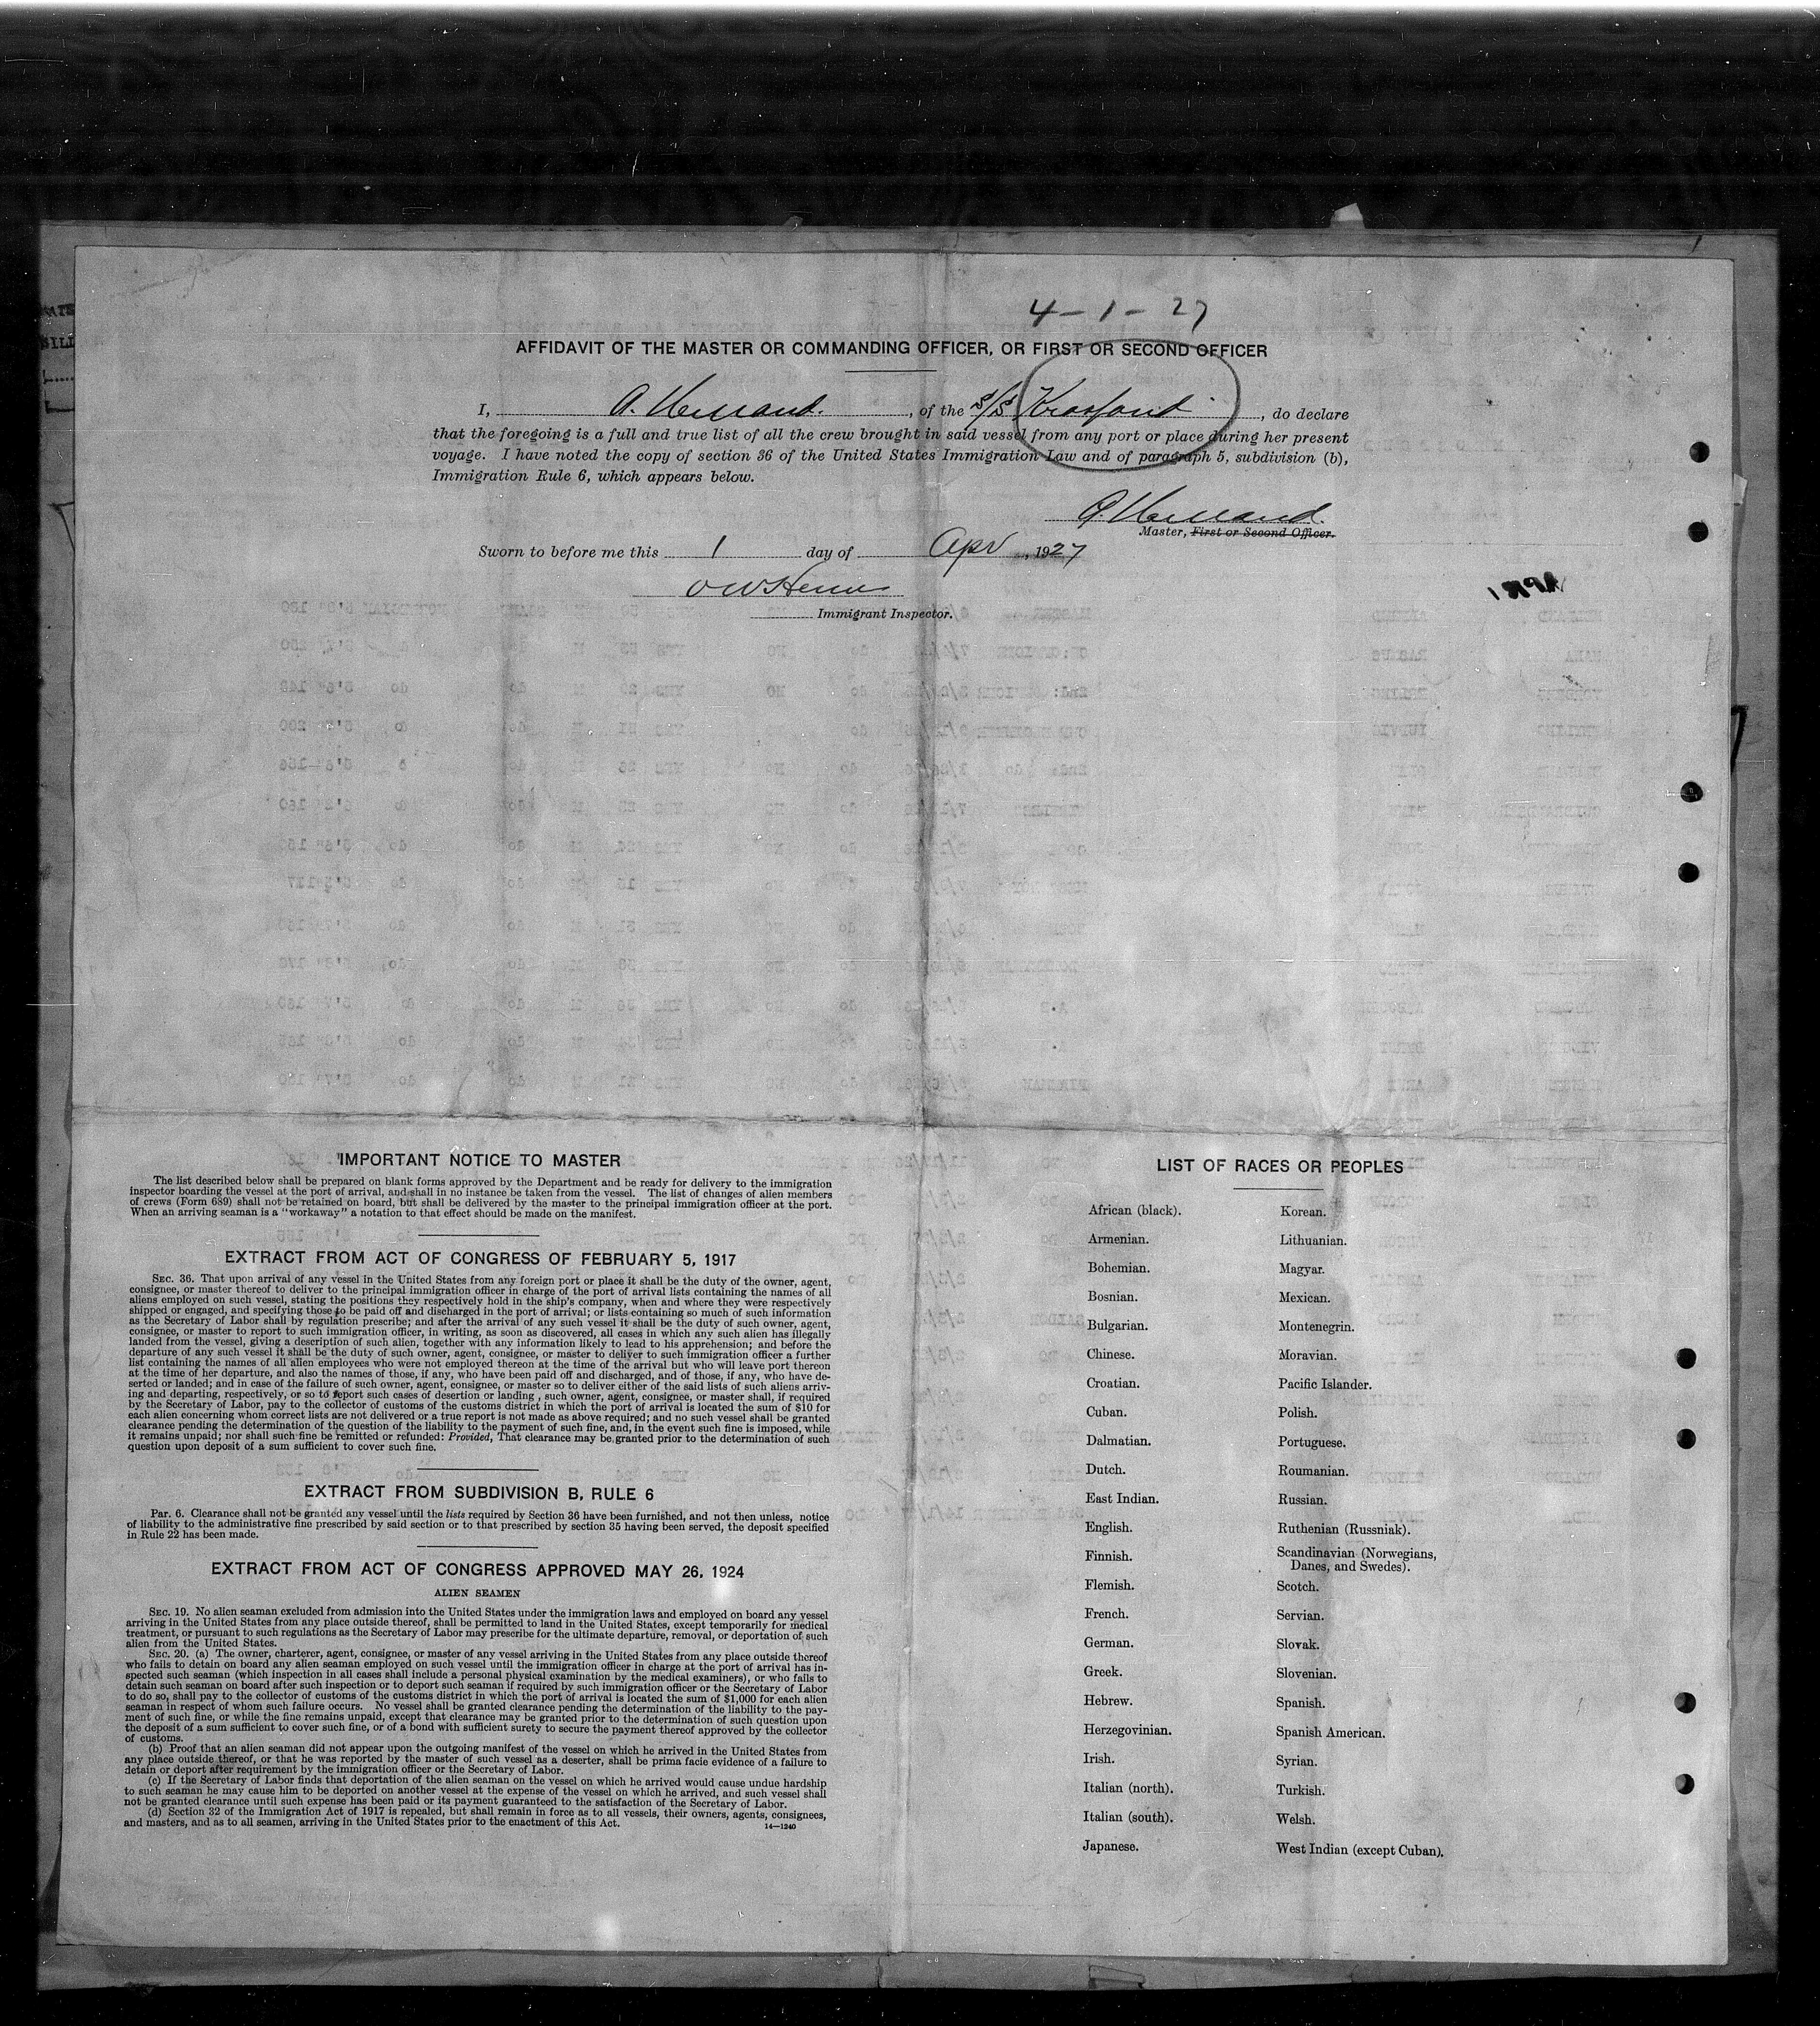 4-1-27
AFFIDAVIT OF THE MASTER OR COMMANDING OFFICER, OR FIRST OR SECOND OFFICER
I, A. , of the S/S , do declare
that the foregoing is a full and true list of all the crew brought in said vessel from any port or place during her present
voyage. I have noted the copy of section 36 of the United States Immigration Law and of paragraph 5, subdivision (b),
Immigration Rule 6, which appears below.
Master, First or Second Officer.
Sworn to before me this 1 day of Apr, 1927
Immigrant Inspector.
IMPORTANT NOTICE TO MASTER
The list described below shall be prepared on blank forms approved by the Department and be ready for delivery to the immigration
inspector boarding the vessel at the port of arrival, and shall in no instance be taken from the vessel. The list of changes of alien members
of crews (Form 689) shall not be retained on board, but shall be delivered by the master to the principal immigration officer at the port.
When an arriving seaman is a "workaway" a notation to that effect should be made on the manifest.
EXTRACT FROM ACT OF CONGRESS OF FEBRUARY 5, 1917
SEC. 36. That upon arrival of any vessel in the United States from any foreign port or place it shall be the duty of the owner, agent,
consignee, or master thereof to deliver to the principal immigration officer in charge of the port of arrival lists containing the names of all
aliens employed on such vessel, stating the positions they respectively hold in the ship's company, when and where they were respectively
shipped or engaged, and specifying those to be paid off and discharged in the port of arrival; or lists containing so much of such information
as the Secretary of Labor shall by regulation prescribe; and after the arrival of any such vessel it shall be the duty of such owner, agent,
consignee, or master to report to such immigration officer, in writing, as soon as discovered, all cases in which any such alien has illegally
landed from the vessel, giving a description of such alien, together with any information likely to lead to his apprehension; and before the
departure of any such vessel it shall be the duty of such owner, agent, consignee, or master to deliver to such immigration officer a further
list containing the names of all alien employees who were not employed thereon at the time of the arrival but who will leave port thereon
at the time of her departure, and also the names of those, if any, who have been paid off and discharged, and of those, if any, who have de-
serted or landed; and in case of the failure of such owner, agent, consignee, or master so to deliver either of the said lists of such aliens arriv-
ing and departing, respectively, or so to report such cases of desertion or landing , such owner, agent, consignee, or master shall, if required
by the Secretary of Labor, pay to the collector of customs of the customs district in which the port of arrival is located the sum of $10 for
each alien concerning whom correct lists are not delivered or a true report is not made as above required; and no such vessel shall be granted
clearance pending the determination of the question of the liability to the payment of such fine, and, in the event such fine is imposed, while
it remains unpaid; nor shall such fine be remitted or refunded: Provided, That clearance may be granted prior to the determination of such
question upon deposit of a sum sufficient to cover such fine.
EXTRACT FROM SUBDIVISION B, RULE 6
Par. 6. Clearance shall not be granted any vessel until the lists required by Section 36 have been furnished, and not then unless, notice
of liability to the administrative fine prescribed by said section or to that prescribed by section 35 having been served, the deposit specified
in Rule 22 has been made.
EXTRACT FROM ACT OF CONGRESS APPROVED MAY 26, 1924
ALIEN SEAMEN
SEC. 19. No alien seaman excluded from admission into the United States under the immigration laws and employed on board any vessel
arriving in the United States from any place outside thereof, shall be permitted to land in the United States, except temporarily for medical
treatment, or pursuant to such regulations as the Secretary of Labor may prescribe for the ultimate departure, removal, or deportation of such
alien from the United States.
SEC. 20. (a) The owner, charterer, agent, consignee, or master of any vessel arriving in the United States from any place outside thereof
who fails to detain on board any alien seaman employed on such vessel until the immigration officer in charge at the port of arrival has in-
spected such seaman (which inspection in all cases shall include a personal physical examination by the medical examiners), or who fails to
detain such seaman on board after such inspection or to deport such seaman if required by such immigration officer or the Secretary of Labor
to do so, shall pay to the collector of customs of the customs district in which the port of arrival is located the sum of $1,000 for each alien
seaman in respect of whom such failure occurs. No vessel shall be granted clearance pending the determination of the liability to the pay-
ment of such fine, or while the fine remains unpaid, except that clearance may be granted prior to the determination of such question upon
the deposit of a sum sufficient to cover such fine, or of a bond with sufficient surety to secure the payment thereof approved by the collector
of customs.
(b) Proof that an alien seaman did not appear upon the outgoing manifest of the vessel on which he arrived in the United States from
any place outside thereof, or that he was reported by the master of such vessel as a deserter, shall be prima facie evidence of a failure to
detain or deport after requirement by the immigration officer or the Secretary of Labor.
(c) If the Secretary of Labor finds that deportation of the alien seaman on the vessel on which he arrived would cause undue hardship
to such seaman he may cause him to be deported on another vessel at the expense of the vessel on which he arrived, and such vessel shall
not be granted clearance until such expense has been paid or its payment guaranteed to the satisfaction of the Secretary of Labor.
(d) Section 32 of the Immigration Act of 1917 is repealed, but shall remain in force as to all vessels, their owners, agents, consignees,
and masters, and as to all seamen, arriving in the United States prior to the enactment of this Act.
14—1240
LIST OF RACES OR PEOPLES
African (black).
Armenian.
Bohemian.
Bosnian.
Bulgarian.
Chinese.
Croatian.
Cuban.
Dalmatian.
Dutch.
East Indian.
English.
Finnish.
Flemish.
French.
German.
Greek.
Hebrew.
Herzegovinian.
Irish.
Italian (north).
Italian (south).
Japanese.
Korean.
Lithuanian.
Magyar.
Mexican.
Montenegrin.
Moravian.
Pacific Islander.
Polish.
Portuguese.
Roumanian.
Russian.
Ruthenian (Russniak).
Scandinavian (Norwegians,
Danes, and Swedes).
Scotch.
Servian.
Slovak.
Slovenian.
Spanish.
Spanish American.
Syrian.
Turkish.
Welsh.
West Indian (except Cuban).